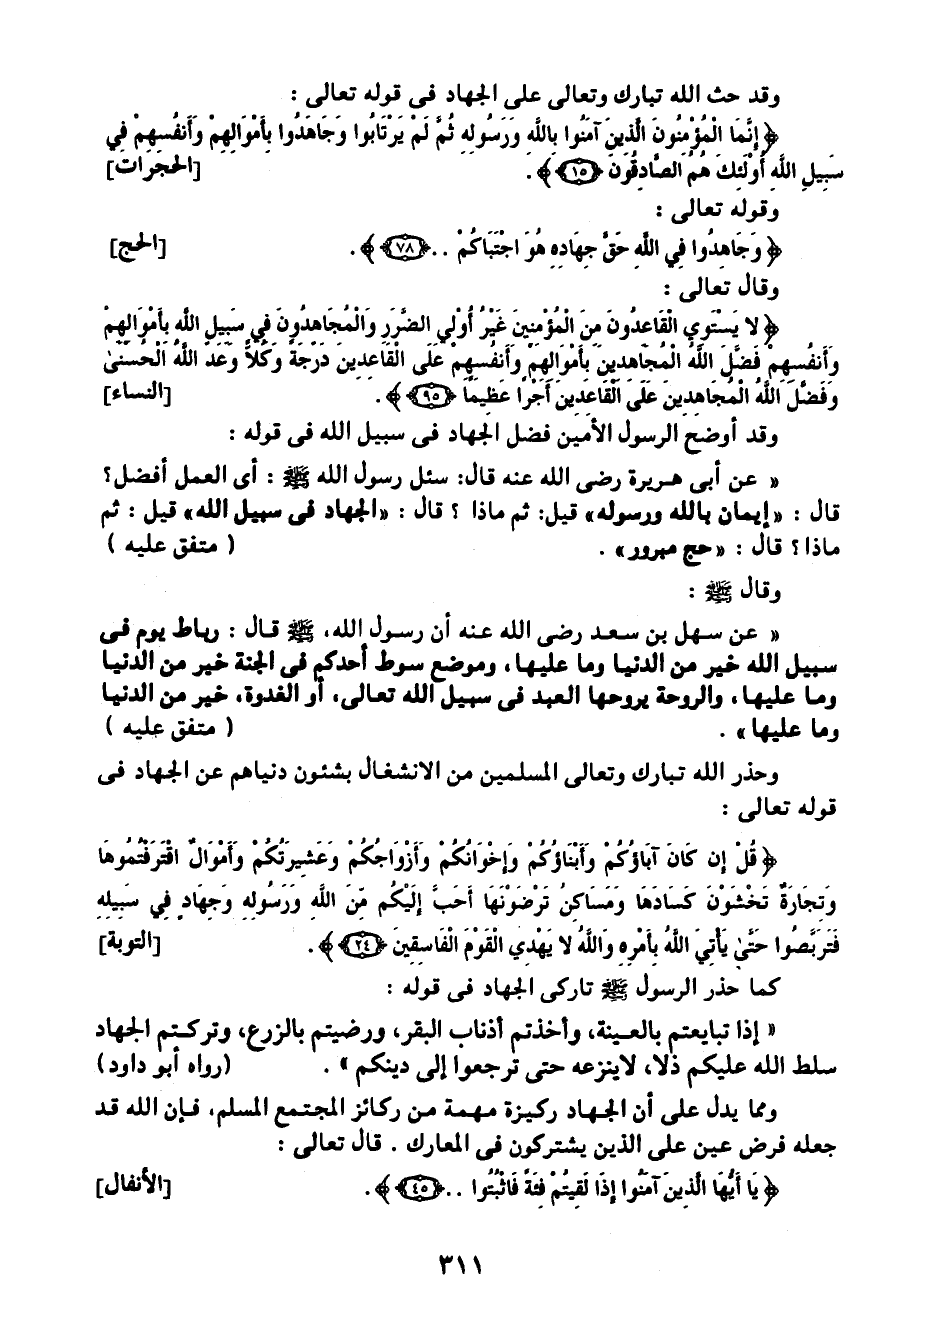 وقد حث الله تبارك وتعالى على الجهاد فى قوله تعالى :
﴿ إِنَّمَا الْمُؤْمِنُونَ الَّذِينَ آمَنُوا بِاللَّهِ وَرَسُولِهِ ثُمَّ لَمْ يَرْتَابُوا وَجَاهَدُوا بِأَمْوَالِهِمْ وَأَنفُسِهِمْ فِي
سَبِيلِ اللَّهِ أُوْلَئِكَ هُمُ الصَّادِقُونَ ﴿١٥﴾ ﴾ . [الحجرات]
وقوله تعالى :
﴿ وَجَاهِدُوا فِي اللَّهِ حَقَّ جِهَادِهِ هُوَ اجْتَبَاكُمْ .. ﴿٧٨﴾ ﴾ . [الحج]
وقال تعالى :
﴿ لا يَسْتَوِي الْقَاعِدُونَ مِنَ الْمُؤْمِنِينَ غَيْرُ أُوْلِي الضَّرَرِ وَالْمُجَاهِدُونَ فِي سَبِيلِ اللَّهِ بِأَمْوَالِهِمْ
وَأَنفُسِهِمْ فَضَّلَ اللَّهُ الْمُجَاهِدِينَ بِأَمْوَالِهِمْ وَأَنفُسِهِمْ عَلَى الْقَاعِدِينَ دَرَجَةً وَكُلاًّ وَعَدَ اللَّهُ الْحُسْنَىٰ
وَفَضَّلَ اللَّهُ الْمُجَاهِدِينَ عَلَى الْقَاعِدِينَ أَجْرًا عَظِيمًا ﴿٩٥﴾ ﴾ . [النساء]
وقد أوضح الرسول الأمين فضل الجهاد فى سبيل الله فى قوله :
« عن أبى هريرة رضى الله عنه قال: سئل رسول الله ﷺ : أى العمل أفضل؟
قال : «إيمان بالله ورسوله» قيل: ثم ماذا ؟ قال : «الجهاد فى سبيل الله» قيل : ثم
ماذا ؟ قال : «حج مبرور» . ( متفق عليه )
وقال ﷺ :
« عن سهل بن سعد رضى الله عنه أن رسول الله، ﷺ قال : رباط يوم فى
سبيل الله خير من الدنيا وما عليها، وموضع سوط أحدكم فى الجنة خير من الدنيا
وما عليها، والروحة يروحها العبد فى سبيل الله تعالى، أو الغدوة، خير من الدنيا
وما عليها» . ( متفق عليه )
وحذر الله تبارك وتعالى المسلمين من الانشغال بشئون دنياهم عن الجهاد فى
قوله تعالى :
﴿ قُلْ إِن كَانَ آبَاؤُكُمْ وَأَبْنَاؤُكُمْ وَإِخْوَانُكُمْ وَأَزْوَاجُكُمْ وَعَشِيرَتُكُمْ وَأَمْوَالٌ اقْتَرَفْتُمُوهَا
وَتِجَارَةٌ تَخْشَوْنَ كَسَادَهَا وَمَسَاكِنُ تَرْضَوْنَهَا أَحَبَّ إِلَيْكُم مِّنَ اللَّهِ وَرَسُولِهِ وَجِهَادٍ فِي سَبِيلِهِ
فَتَرَبَّصُوا حَتَّىٰ يَأْتِيَ اللَّهُ بِأَمْرِهِ وَاللَّهُ لا يَهْدِي الْقَوْمَ الْفَاسِقِينَ ﴿٢٤﴾ ﴾ . [التوبة]
كما حذر الرسول ﷺ تاركى الجهاد فى قوله :
« إذا تبايعتم بالعينة، وأخذتم أذناب البقر، ورضيتم بالزرع، وتركتم الجهاد
سلط الله عليكم ذلا، لاينزعه حتى ترجعوا إلى دينكم » . (رواه أبو داود)
ومما يدل على أن الجهاد ركيزة مهمة من ركائز المجتمع المسلم، فإن الله قد
جعله فرض عين على الذين يشتركون فى المعارك . قال تعالى :
﴿ يَا أَيُّهَا الَّذِينَ آمَنُوا إِذَا لَقِيتُمْ فِئَةً فَاثْبُتُوا .. ﴿٤٥﴾ ﴾ . [الأنفال]
٣١١